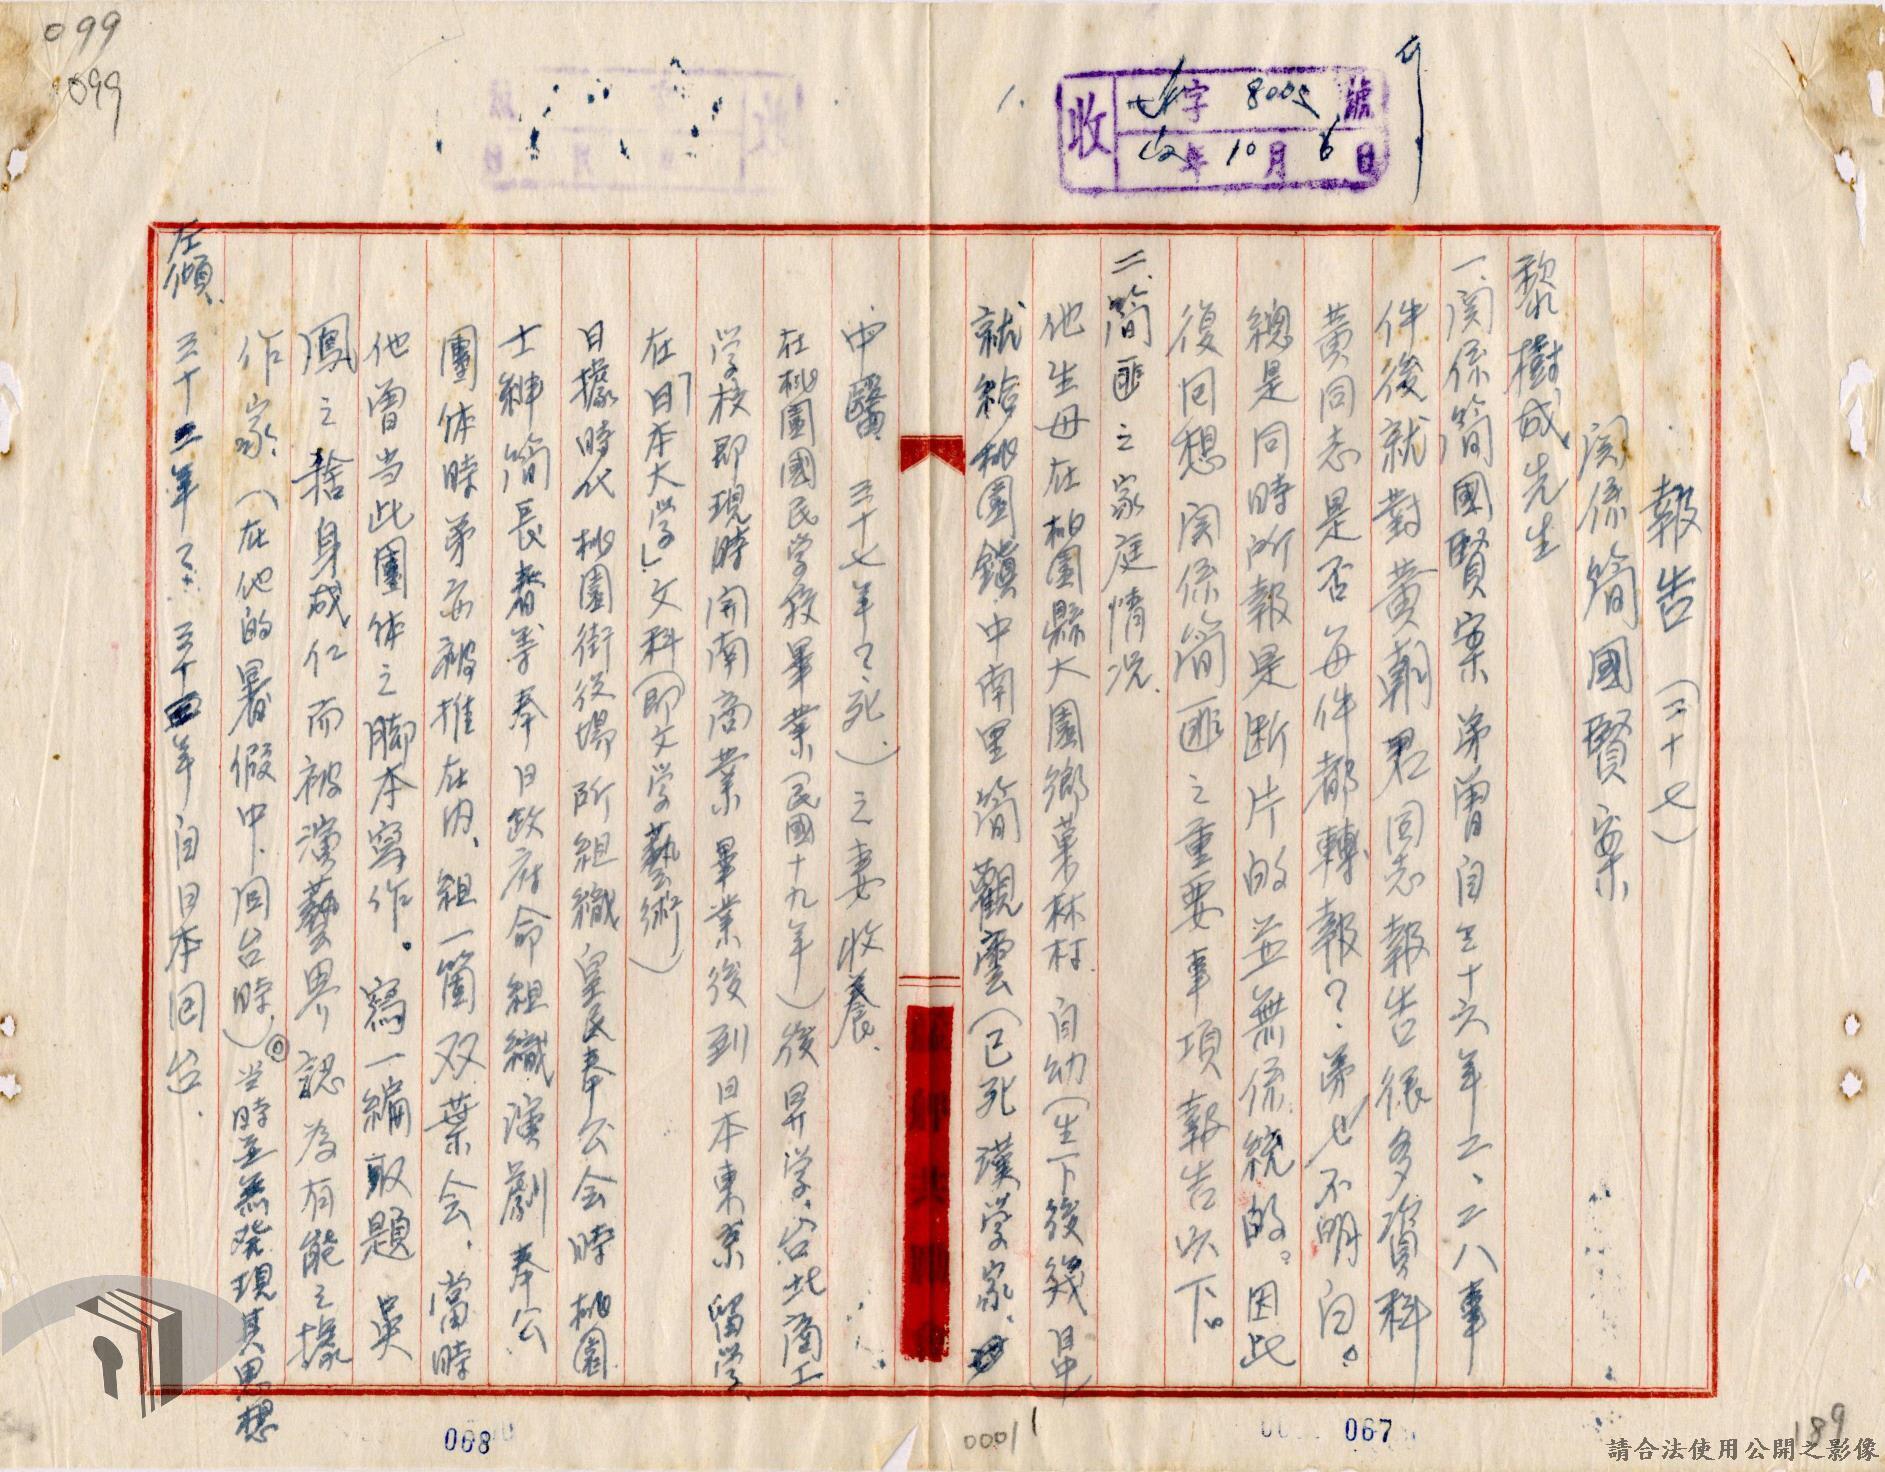 099
099
收 字 8005 號
年 10 月 6 日
報告（二十七）
関係簡國賢案
黎樹成先生
一、関係簡國賢案 弟曾自三十六年二、二八事
件後就對黃朝君同志報告很多資料
黃同志是否每件都轉報？弟也不明白。
總是同時所報是断片的並無係統的。因此
復回想関係簡匪之重要事項報告以下。
二、簡匪之家庭情況.
他生母在桃園縣大園鄉菓林村.自幼（生下後幾日中）
就給桃園鎮中南里簡觀雲（已死漢学家、
中醫 三十七年？死.）之妻收養.
在桃園國民学校畢業（民國十九年）後昇学、台北商工
学校即現時開南商業畢業後到日本東京留学
在「日本大学」文科（即文学藝術）
日據時代桃園街役場所組織皇民奉公会時桃園
士紳簡長春等奉日政府命組織演劇奉公
團体時弟亦被推在內、組一箇双葉会、當時
他曾当此團体之脚本寫作。寫一編取題吳
鳳之捨身成仁而被演藝界認為有能之據
作家、（在他的暑假中、回台時、）◎当時並無発現其思想
左傾、
三十二年又三十四年自日本回台.
068
00011
067
189
請合法使用公開之影像